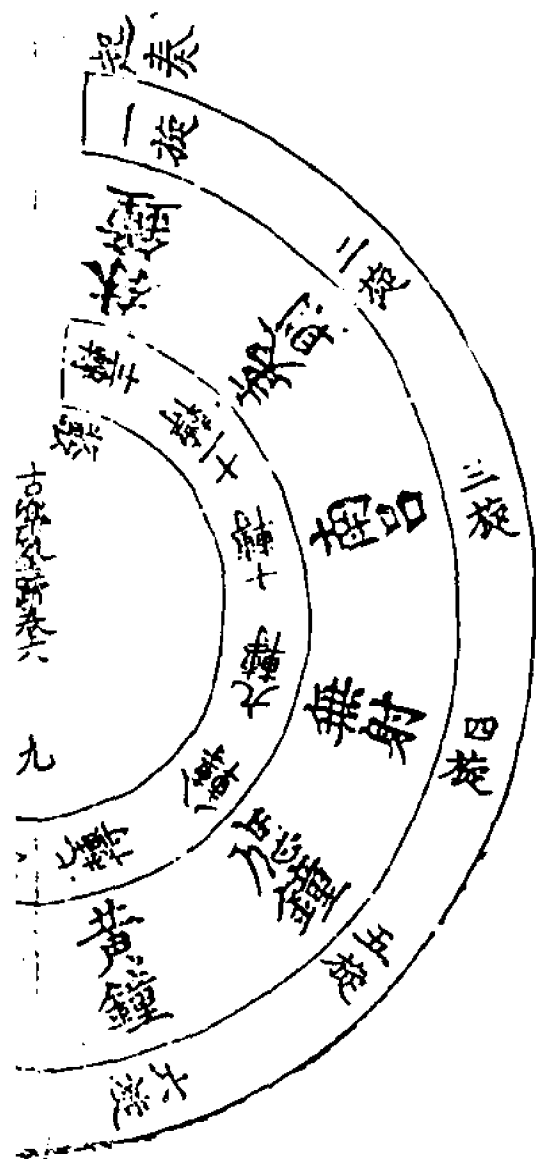 起奏
一旋
二旋
三旋
四旋
五旋
六旋
林鐘
夷則
南呂
無射
應鐘
黃鐘
十二轉
十一轉
十轉
九轉
八轉
七轉
卷六
九